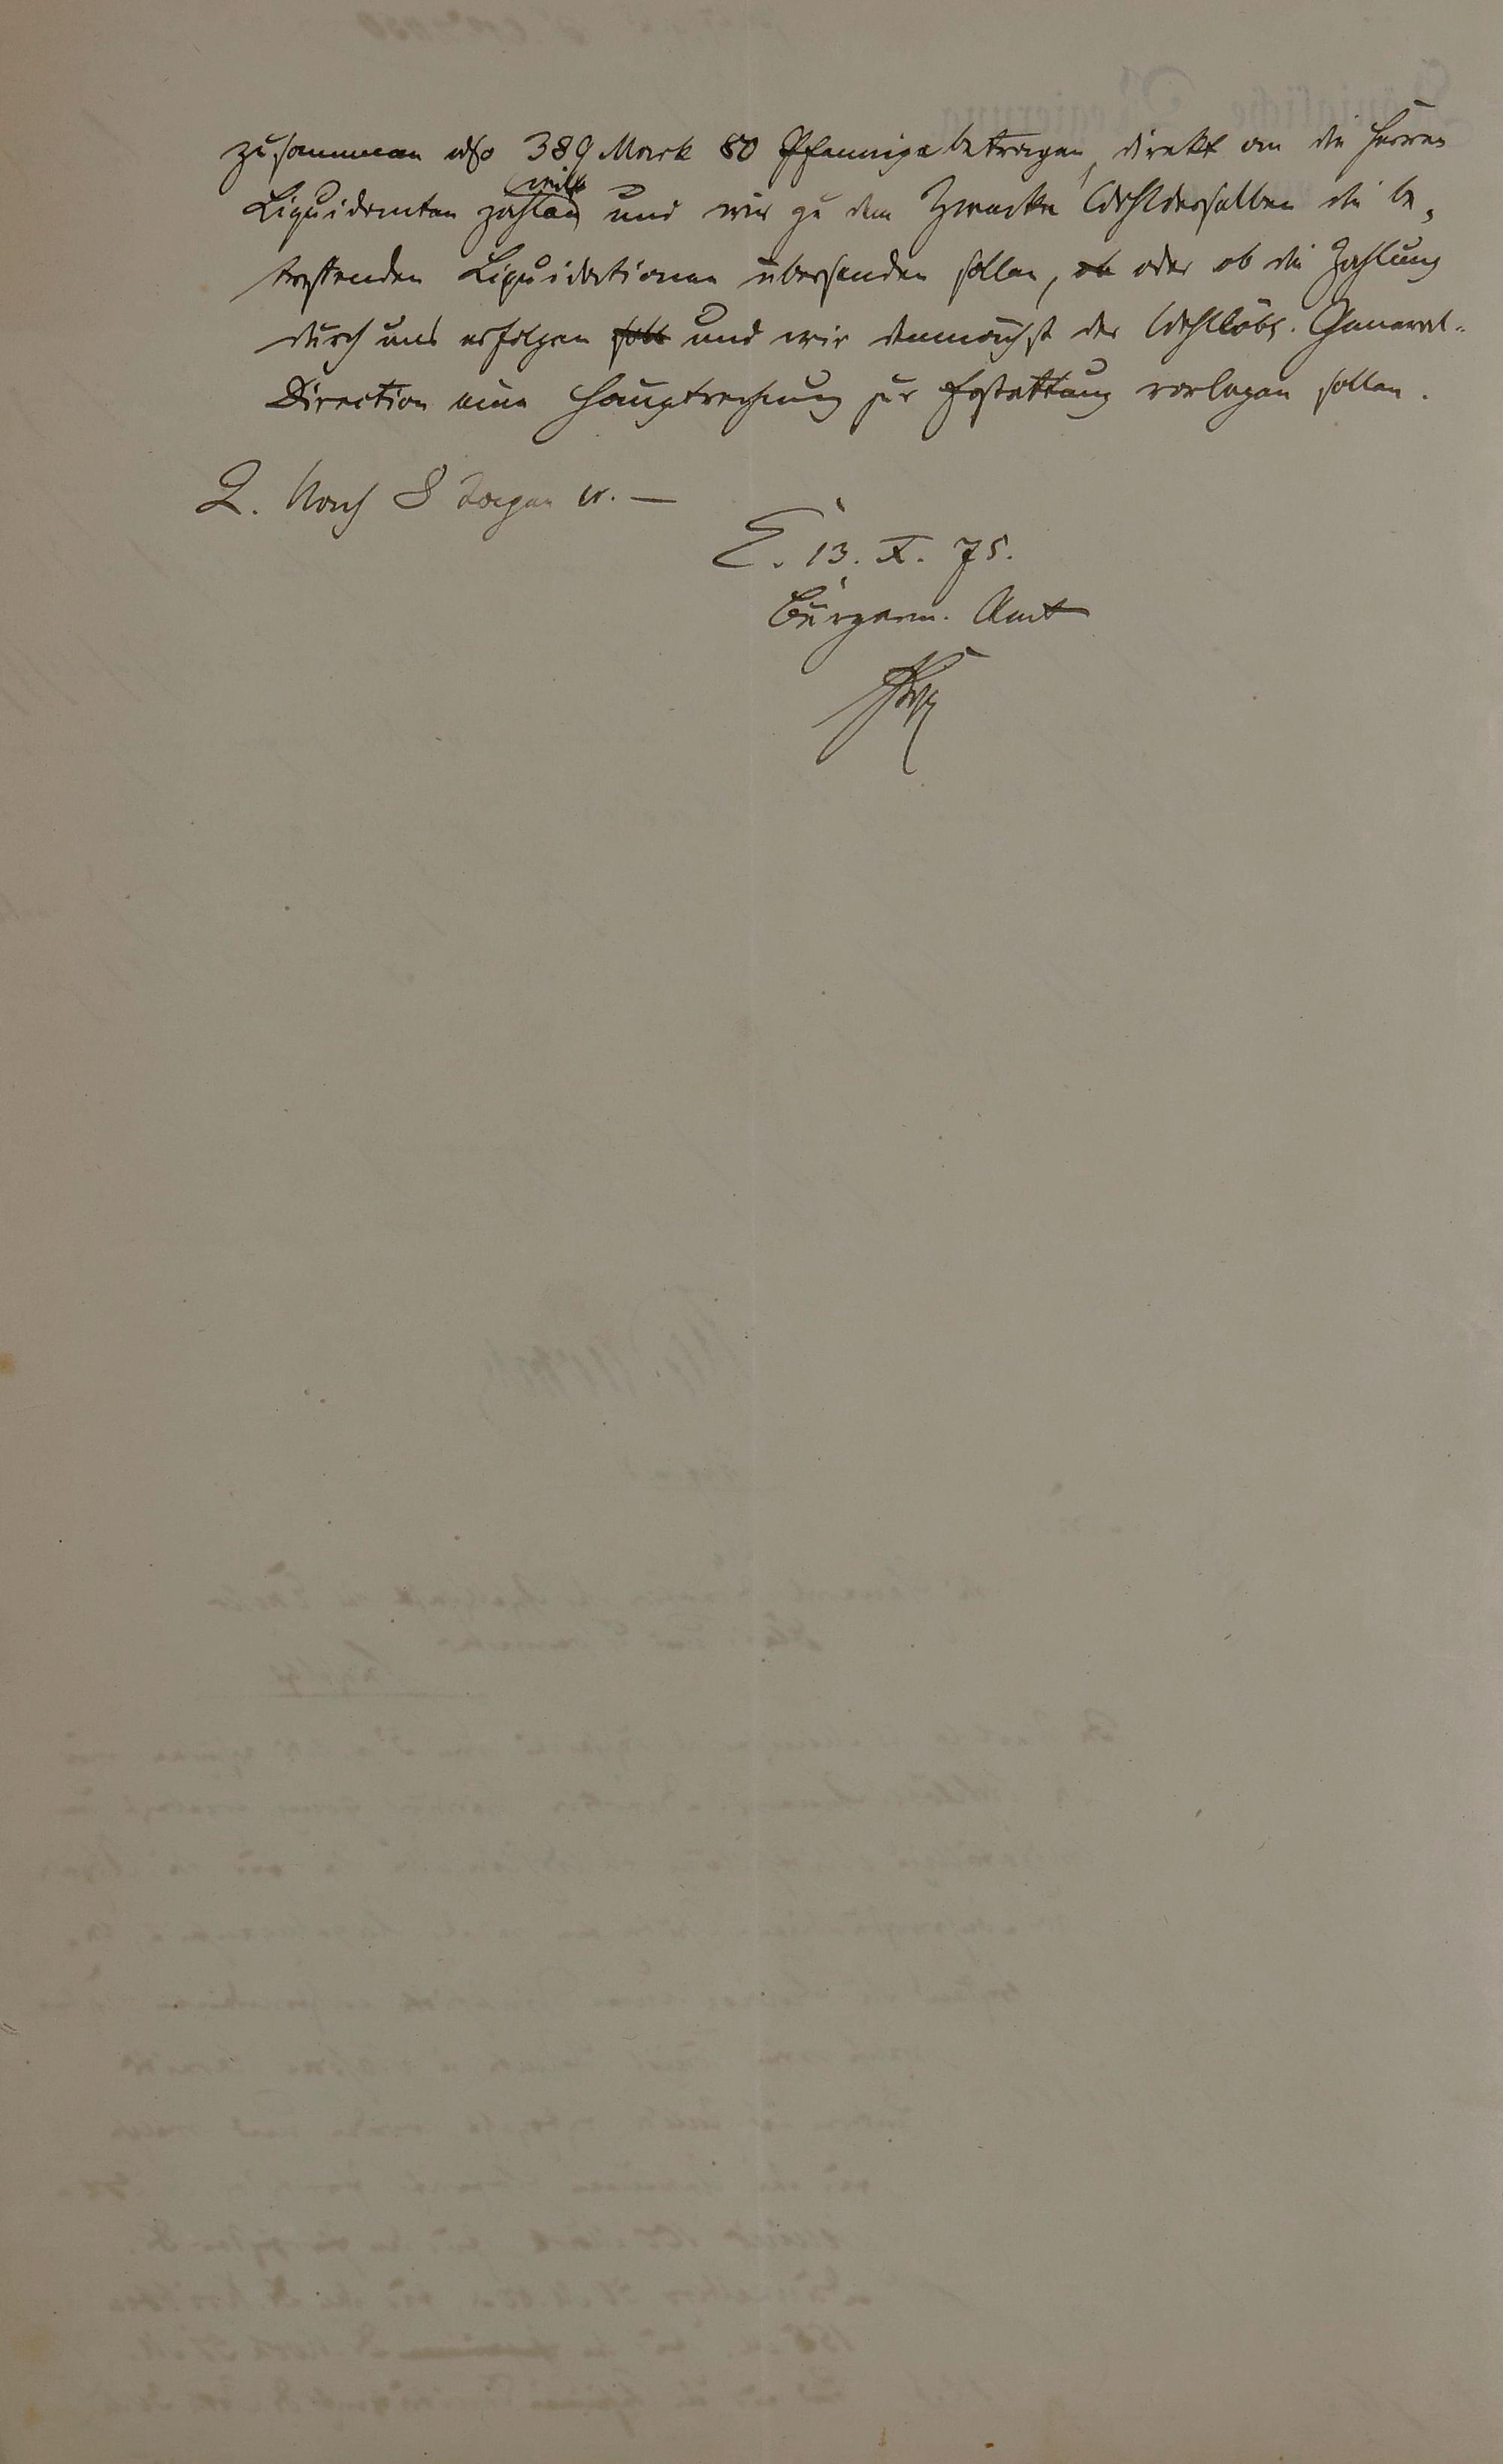 zusammen also 389 Mark 80 Pfennige betragen, direkt an die Herren
will
Liquidanten zahlen und wir zu dem Zwecke Wohlderselben die be-
treffenden Liquidationen übersenden sollen, ob oder ob die Zahlung
durch uns erfolgen soll und wir demnächst der Wohllöbl. General-
Direction eine Hauptrechnung zur Erstattung vorlegen sollen.
2. Nach 8 Tagen w. —
E. 13. X. 75.
Bürgerm. Amt